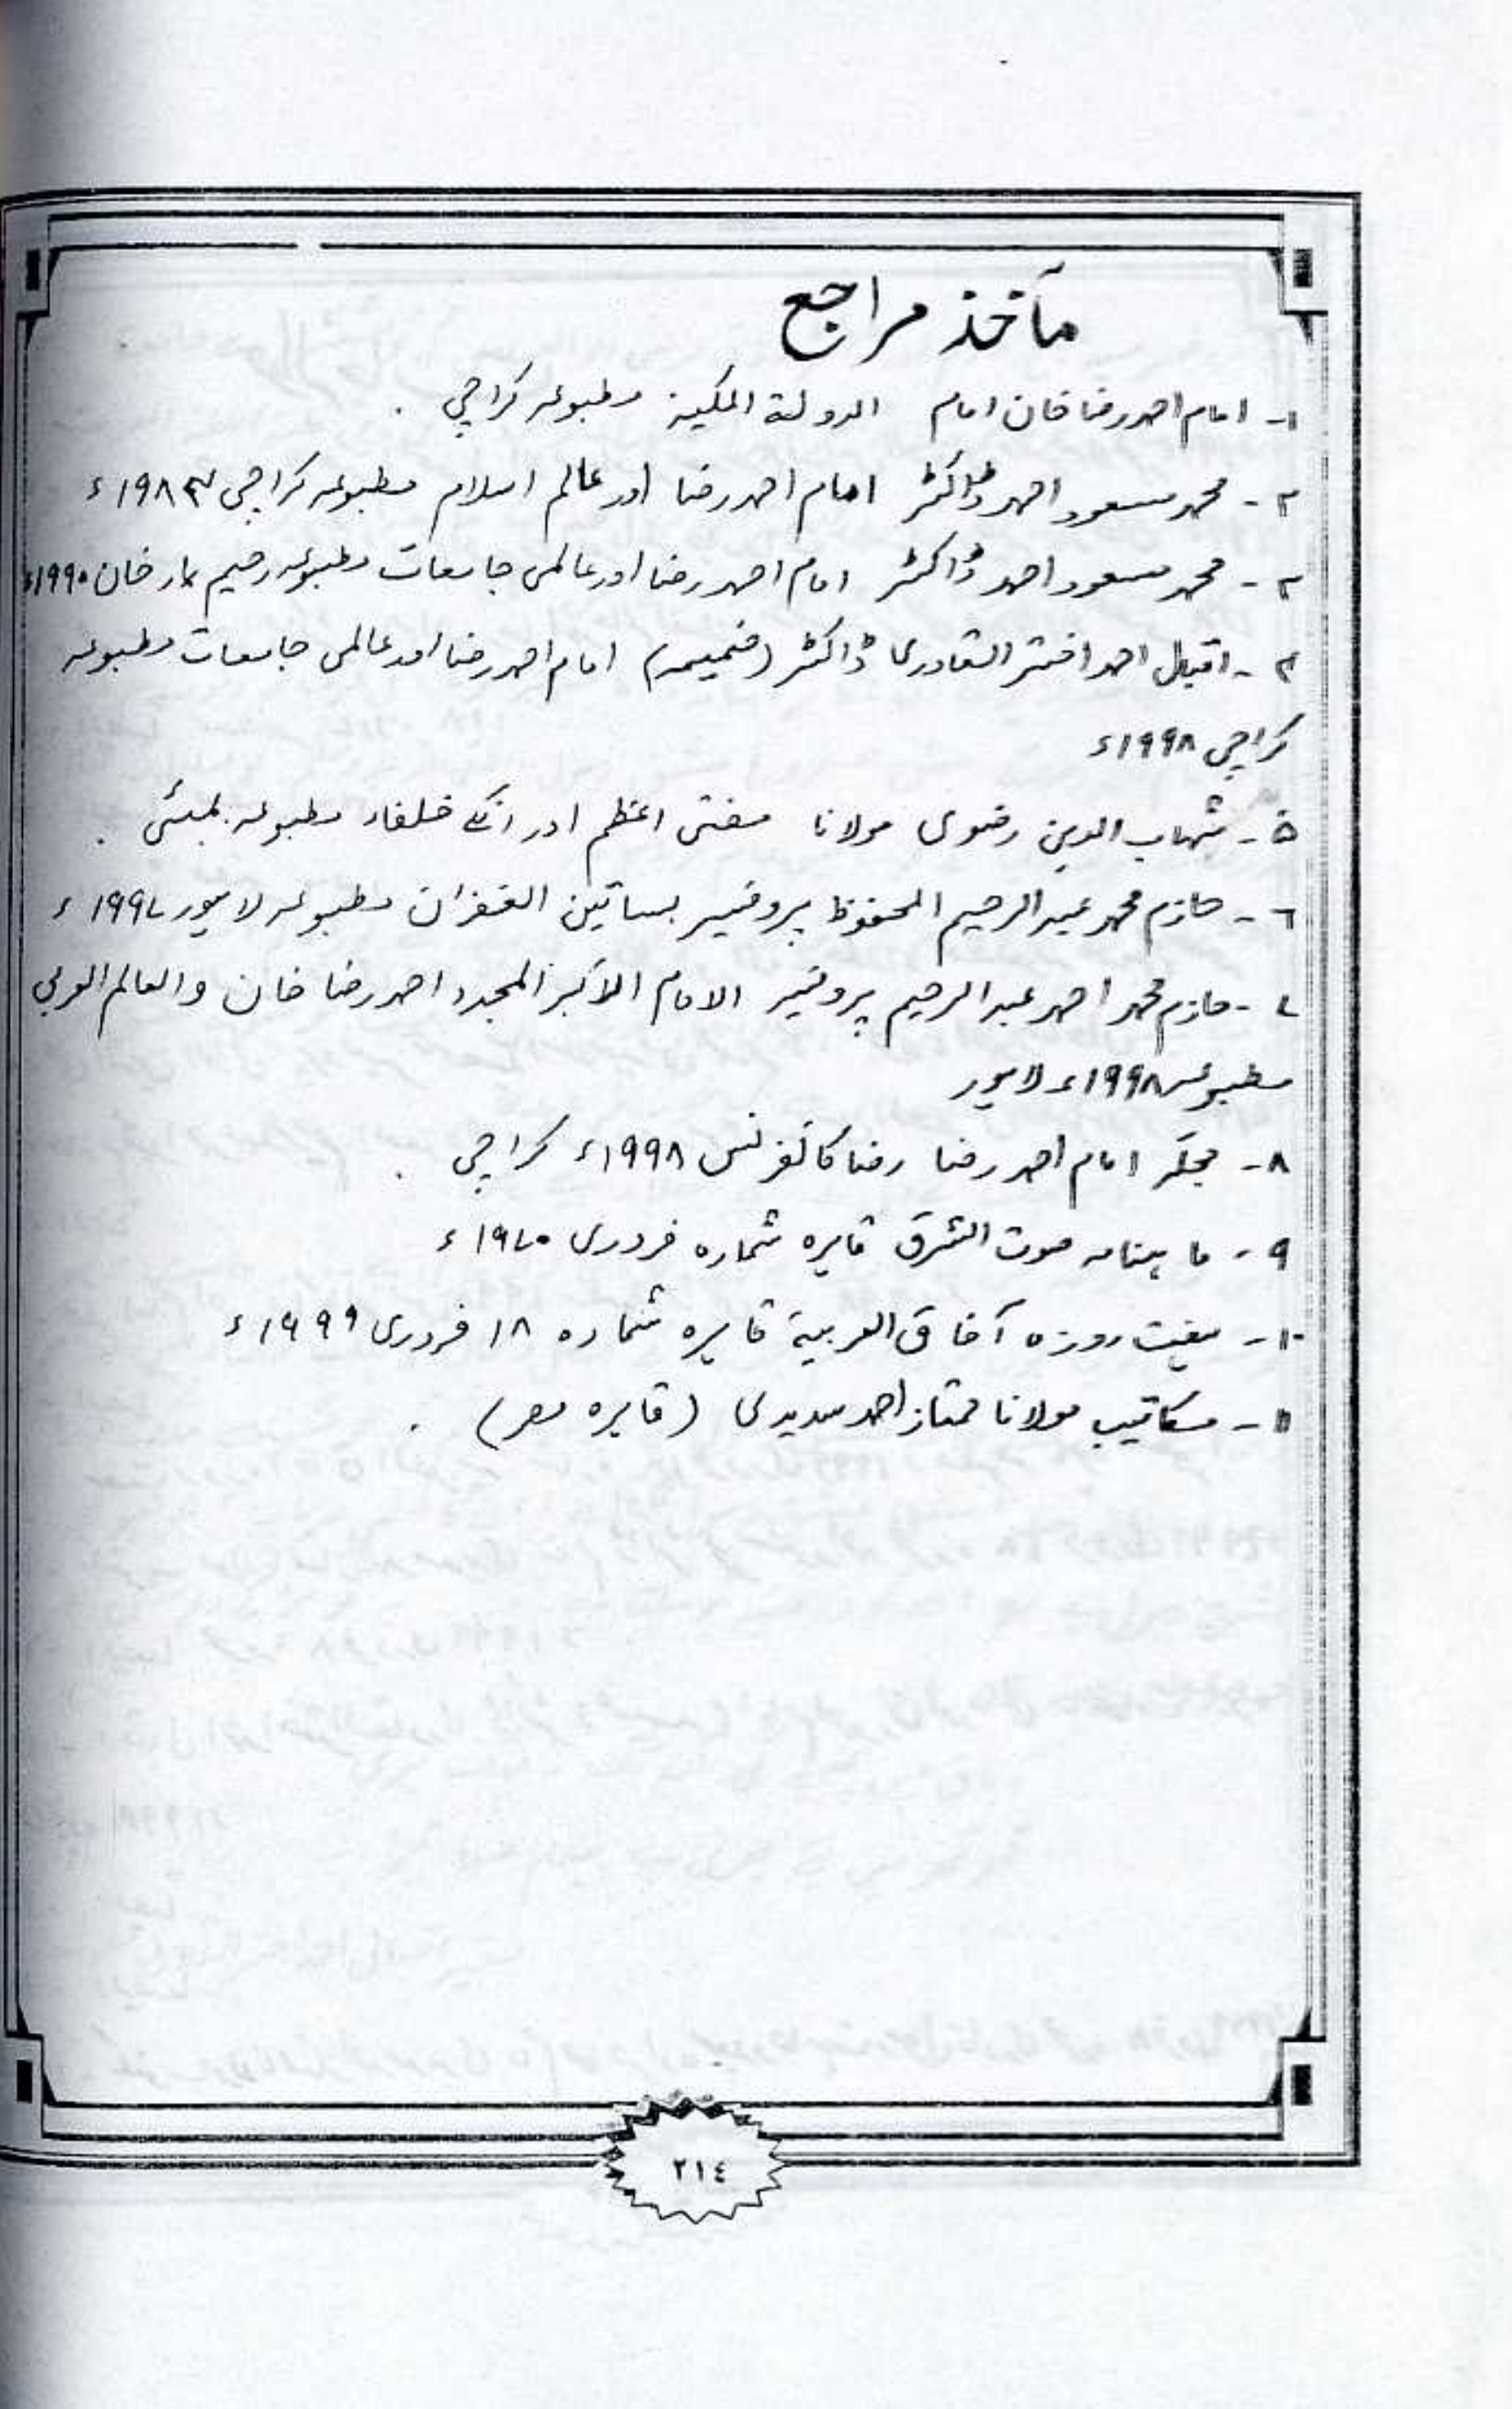 مآخذ مراجع
۱- امام احمد رضا خان امام الدولۃ المکیۃ مطبوعہ کراچی .
۲- محمد مسعود احمد ڈاکٹر امام احمد رضا اور عالم اسلام مطبوعہ کراچی ۱۹۸۳ء
۳- محمد مسعود احمد ڈاکٹر امام احمد رضا اور عالمی جامعات مطبوعہ رحیم یار خان ۱۹۹۰ء
۴- اقبال احمد اختر القادری ڈاکٹر (ضمیمہ) امام احمد رضا اور عالمی جامعات مطبوعہ
کراچی ۱۹۹۸ء
۵- شہاب الدین رضوی مولانا مفتی اعظم اور انکے خلفاء مطبوعہ بمبئی .
٦- حازم محمد عبد الرحیم المحفوظ پروفیسر بساتین الغفران مطبوعہ لاہور ۱۹۹۷ء
۷- حازم محمد احمد عبد الرحیم پروفیسر الامام الاکبر المجدد احمد رضا خان والعالم العربی
مطبوعہ ۱۹۹۸ء لاہور
۸- مجلّہ امام احمد رضا رضا کانفرنس ۱۹۹۸ء کراچی .
۹- ماہنامہ صوت الشرق قاہرہ شمارہ فروری ۱۹۷۰ء
۱۰- ہفت روزہ آفاق العربیۃ قاہرہ شمارہ ۱۸ فروری ۱۹۹۹ء
۱۱- مکاتیب مولانا ممتاز احمد سدیدی (قاہرہ مصر) .
٢١٤